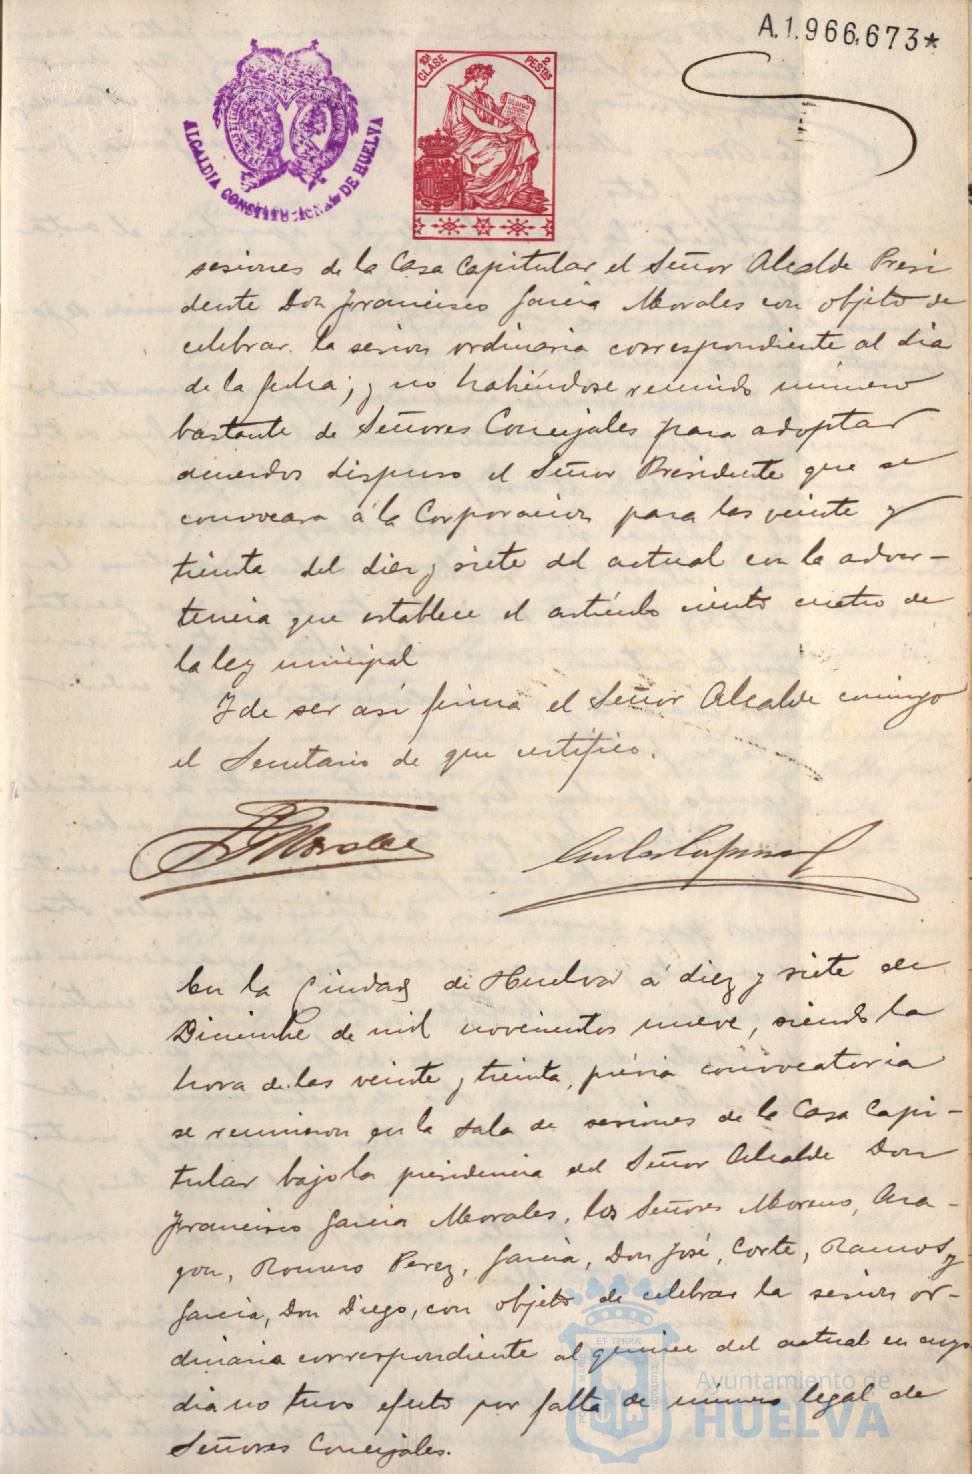 A.1.966,673*
ALCALDIA CONSTITUCIONAL DE HUELVA
10ª CLASE
2 PESTAS
sesiones de la Casa Capitular el Señor Alcalde Presi
dente Don Francisco Garcia Morales con objeto de
celebrar la sesion ordinaria correspondiente al dia
de la fecha; y no habiéndose reunido número
bastante de Señores Concejales para adoptar
acuerdos dispuso el Señor Presidente que se
convocara á la Corporacion para las veinte y
treinta del diez y siete del actual con la adver-
tencia que establece el artículo ciento cuatro de
la ley municipal
Y de ser así firma el Señor Alcalde conmigo
el Secretario de que certifico.
F G Morales
En la Ciudad de Huelva á diez y siete de
Diciembre de mil novecientos nueve, siendo la
hora de las veinte y treinta, prévia convocatoria
se reunieron en la sala de sesiones de la Casa Capi-
tular bajo la presidencia del Señor Alcalde Don
Francisco Garcia Morales, los Señores Moreno, Ara-
gon, Romero Perez, García, Don José, Corte, Ramos y
García, Don Diego, con objeto de celebrar la sesion or-
dinaria correspondiente al quince del actual en cuyo
dia no tuvo efecto por falta de número legal de
Señores Concejales.
Ayuntamiento de
HUELVA